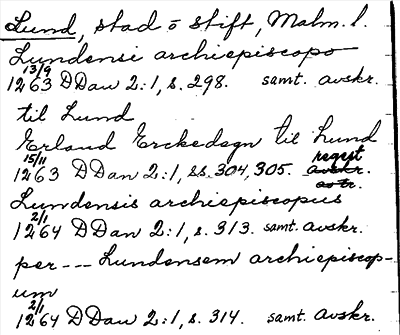 Lund, stad o stift, Malm. l.
Lundensi archiepiscopo
13/9
1263 DDan 2:1, s. 298. samt. avskr.
til Lund
Erland Erckedegn til Lund
15/11 regest
1263 DDan 2:1, ss. 304, 305. avskr.
avtr.
Lundensis archiepiscopus
2/1
1264 DDan 2:1, s. 313. samt. avskr.
per --- Lundensem archiepiscop-
um
2/1
1264 DDan 2:1, s. 314. samt. avskr.